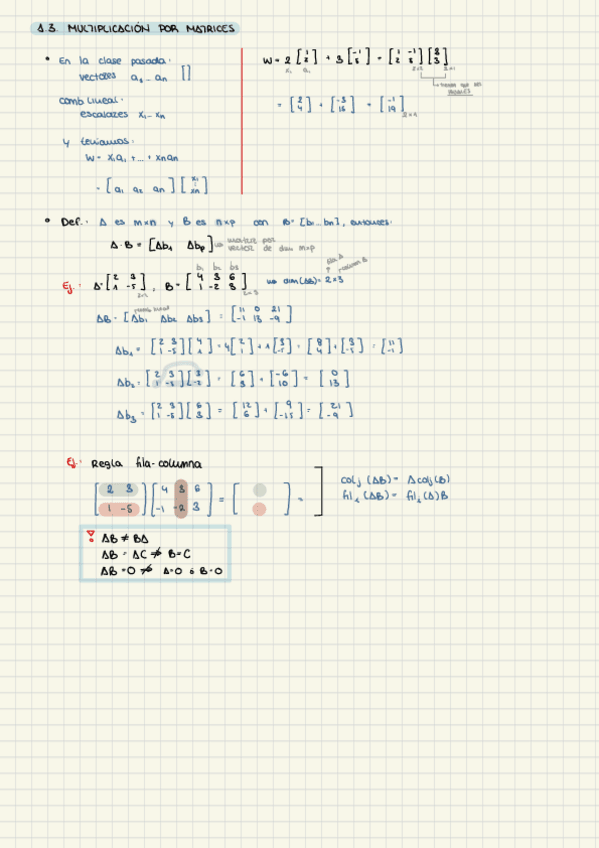 1.3. MULTIPLICACIÓN POR MATRICES
• En la clase pasada:
vectores a₁ ... an []
comb lineal:
escalares x₁ ... xn
y teníamos:
W = x₁a₁ + ... + xnan
= [a₁ a₂ an] [x₁ ⋮ xn]
W = 2 [1 2] + 3 [-1 5] = [1 -1; 2 5] [2 3]
x₁ a₁ 2×2 2×1
= [2 4] + [-3 15] = [-1 19] 2×1
• Def.: A es m×n y B es n×p con B = [b₁...bn], entonces:
A · B = [Ab₁ Abp] → matriz por
vector de dim m×p
b₁ b₂ b₃
Ej.: A = [2 3; 1 -5] 2×2, B = [4 3 6; 1 -2 3] 2×3 → dim(AB) = 2×3
fila A
columna B
AB = [Ab₁ Ab₂ Ab₃] = [11 0 21; -1 13 -9]
Ab₁ = [2 3; 1 -5] [4 1] = 4 [2 1] + 1 [3 -5] = [8 4] + [3 -5] = [11 -1]
Ab₂ = [2 3; 1 -5] [3 -2] = [6 3] + [-6 10] = [0 13]
Ab₃ = [2 3; 1 -5] [6 3] = [12 6] + [9 -15] = [21 -9]
Ej.: Regla fila-columna
[2 3; 1 -5] [4 3 6; -1 -2 3] = [ ] = ]
colj (AB) = A colj (B)
fil₁ (AB) = fil₁ (A) B
AB ≠ BA
AB = AC ⇏ B = C
AB = 0 ⇏ A = 0 ó B = 0